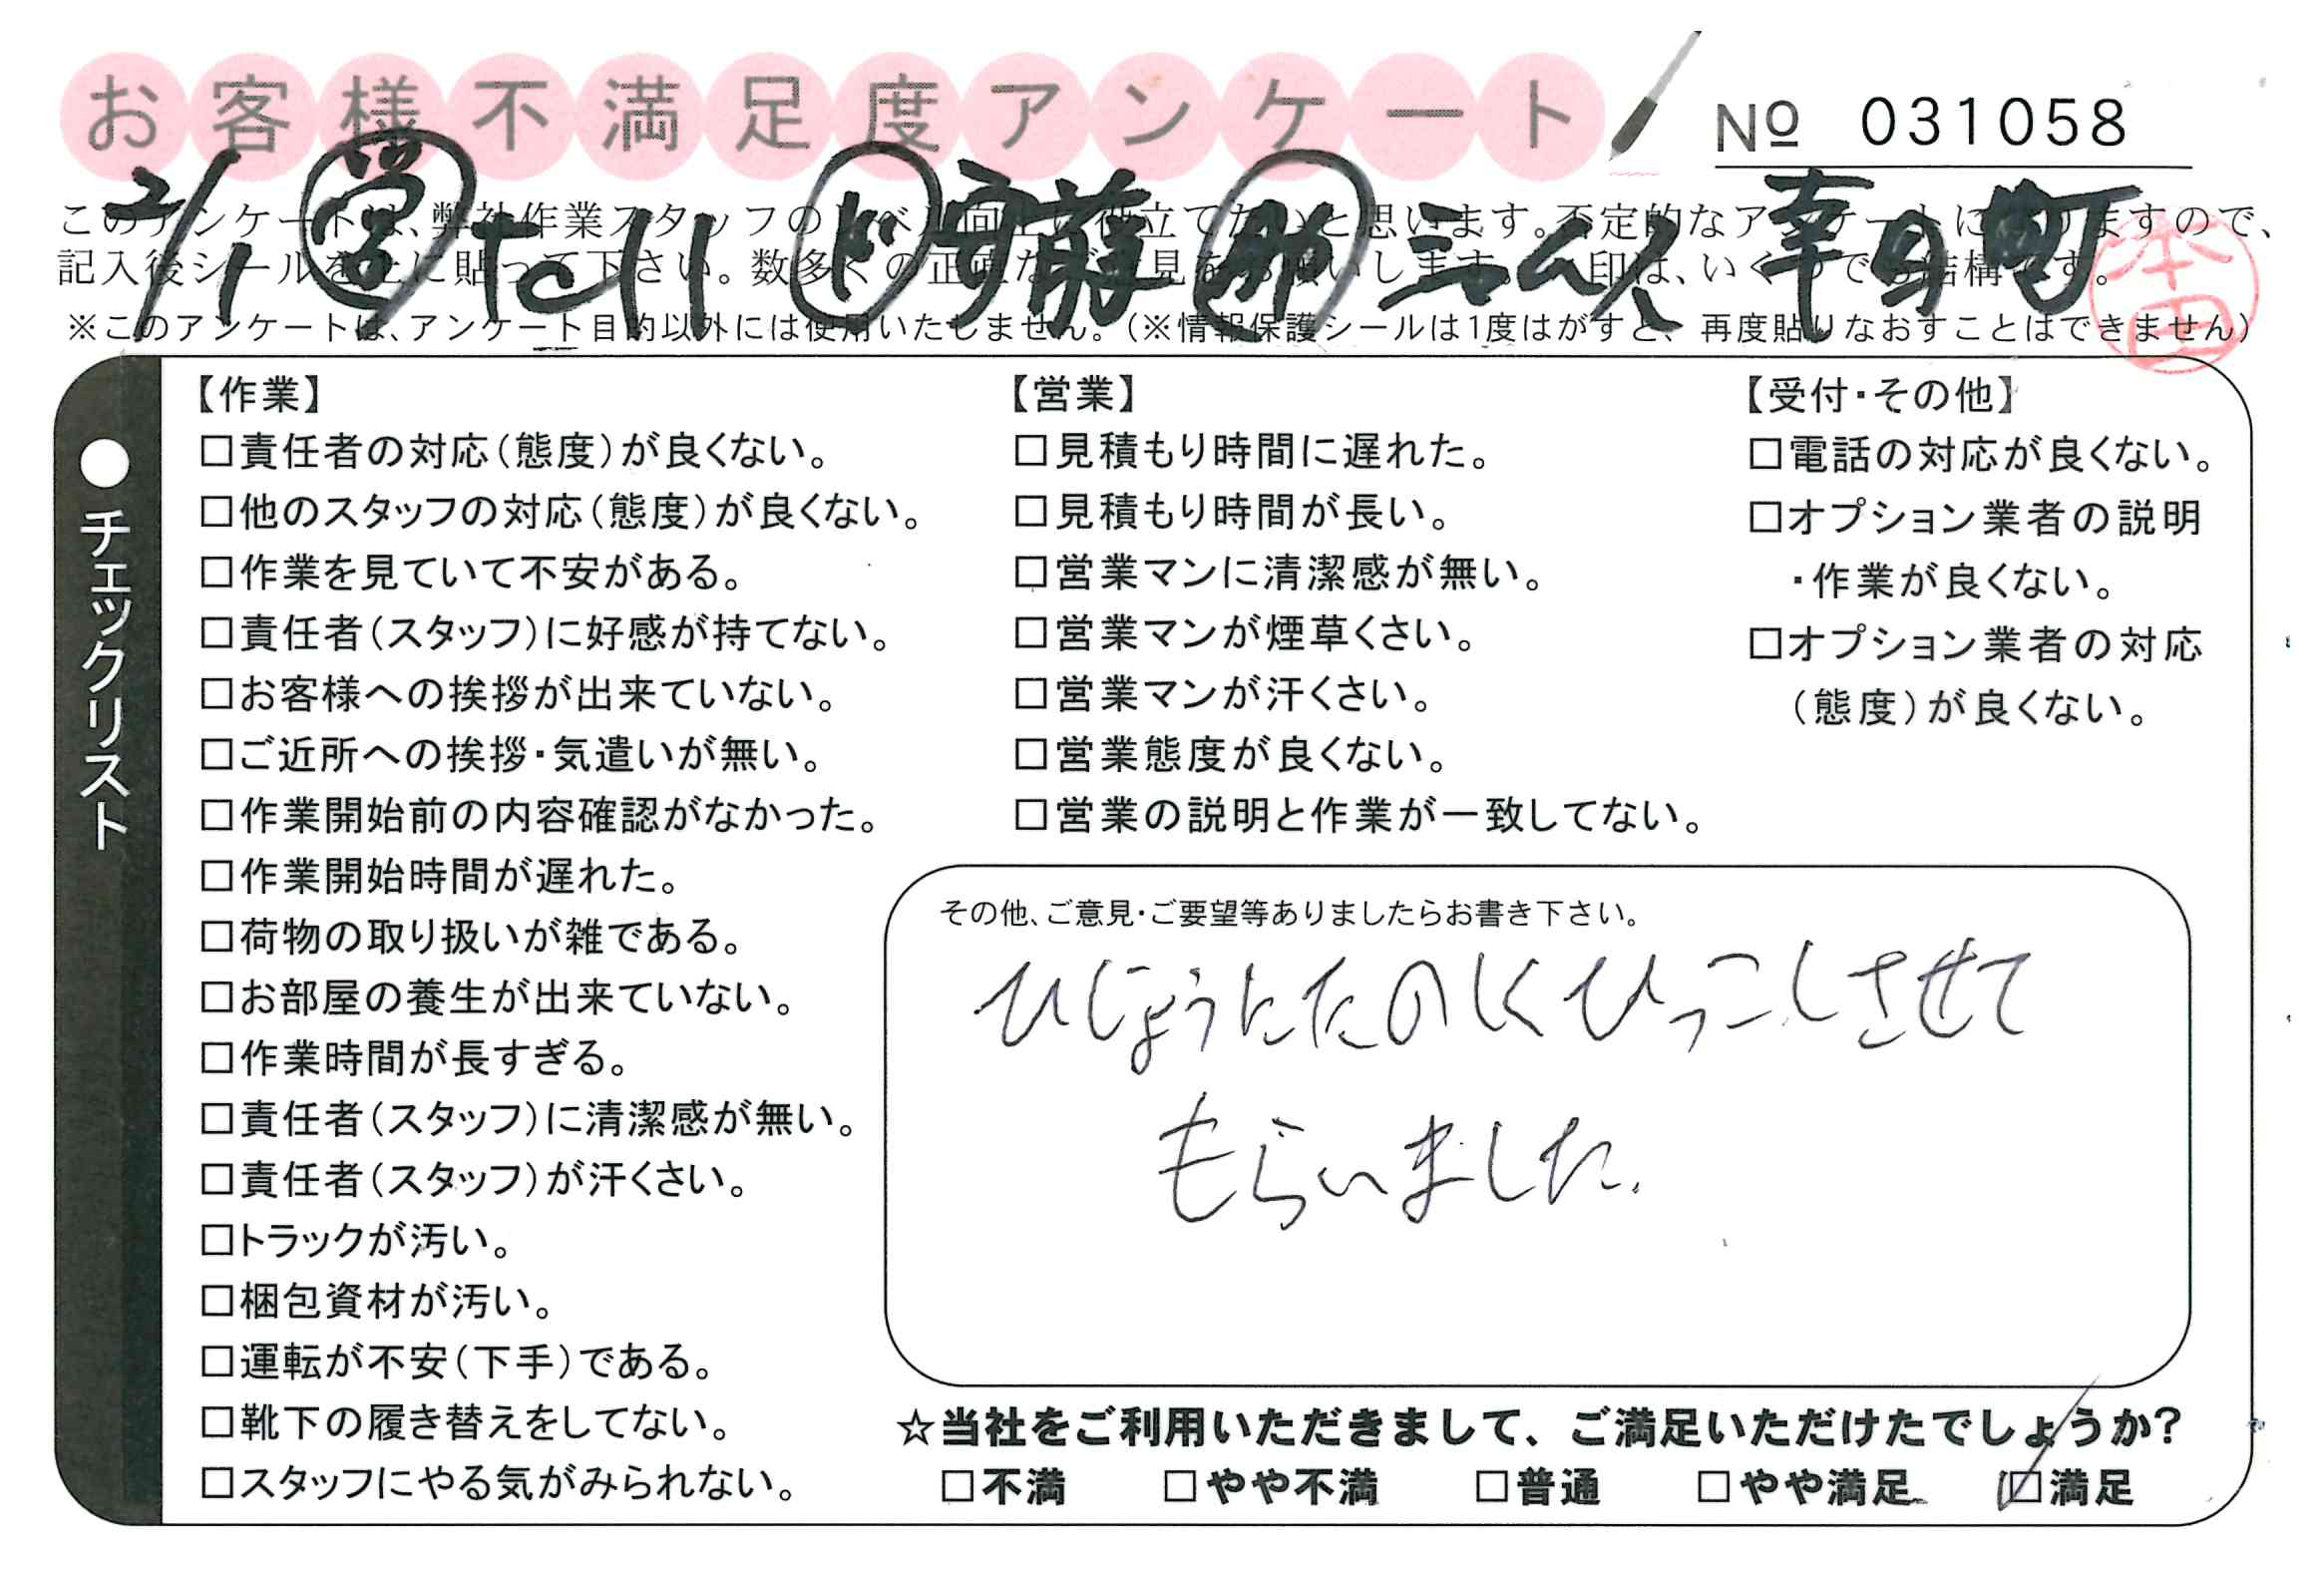 お客様不満足度アンケート
№ 031058
2/1 営 Tell ド 斉藤 助 三人 幸町
このアンケートは、弊社作業スタッフのレベル向上に役立てたいと思います。否定的なアンケートになりますので、
記入後シールを上に貼って下さい。数多くの正直なご意見をお願いします。 印は、いくつでも結構です。
※このアンケートは、アンケート目的以外には使用いたしません。(※情報保護シールは1度はがすと、再度貼りなおすことはできません)
本田
●チェックリスト
【作業】
□責任者の対応(態度)が良くない。
□他のスタッフの対応(態度)が良くない。
□作業を見ていて不安がある。
□責任者(スタッフ)に好感が持てない。
□お客様への挨拶が出来ていない。
□ご近所への挨拶・気遣いが無い。
□作業開始前の内容確認がなかった。
□作業開始時間が遅れた。
□荷物の取り扱いが雑である。
□お部屋の養生が出来ていない。
□作業時間が長すぎる。
□責任者(スタッフ)に清潔感が無い。
□責任者(スタッフ)が汗くさい。
□トラックが汚い。
□梱包資材が汚い。
□運転が不安(下手)である。
□靴下の履き替えをしてない。
□スタッフにやる気がみられない。
【営業】
□見積もり時間に遅れた。
□見積もり時間が長い。
□営業マンに清潔感が無い。
□営業マンが煙草くさい。
□営業マンが汗くさい。
□営業態度が良くない。
□営業の説明と作業が一致してない。
【受付・その他】
□電話の対応が良くない。
□オプション業者の説明
・作業が良くない。
□オプション業者の対応
(態度)が良くない。
その他、ご意見・ご要望等ありましたらお書き下さい。
ひじょうにたのしくひっこしさせて
もらいました.
☆当社をご利用いただきまして、ご満足いただけたでしょうか?
□不満 □やや不満 □普通 □やや満足 ☑満足